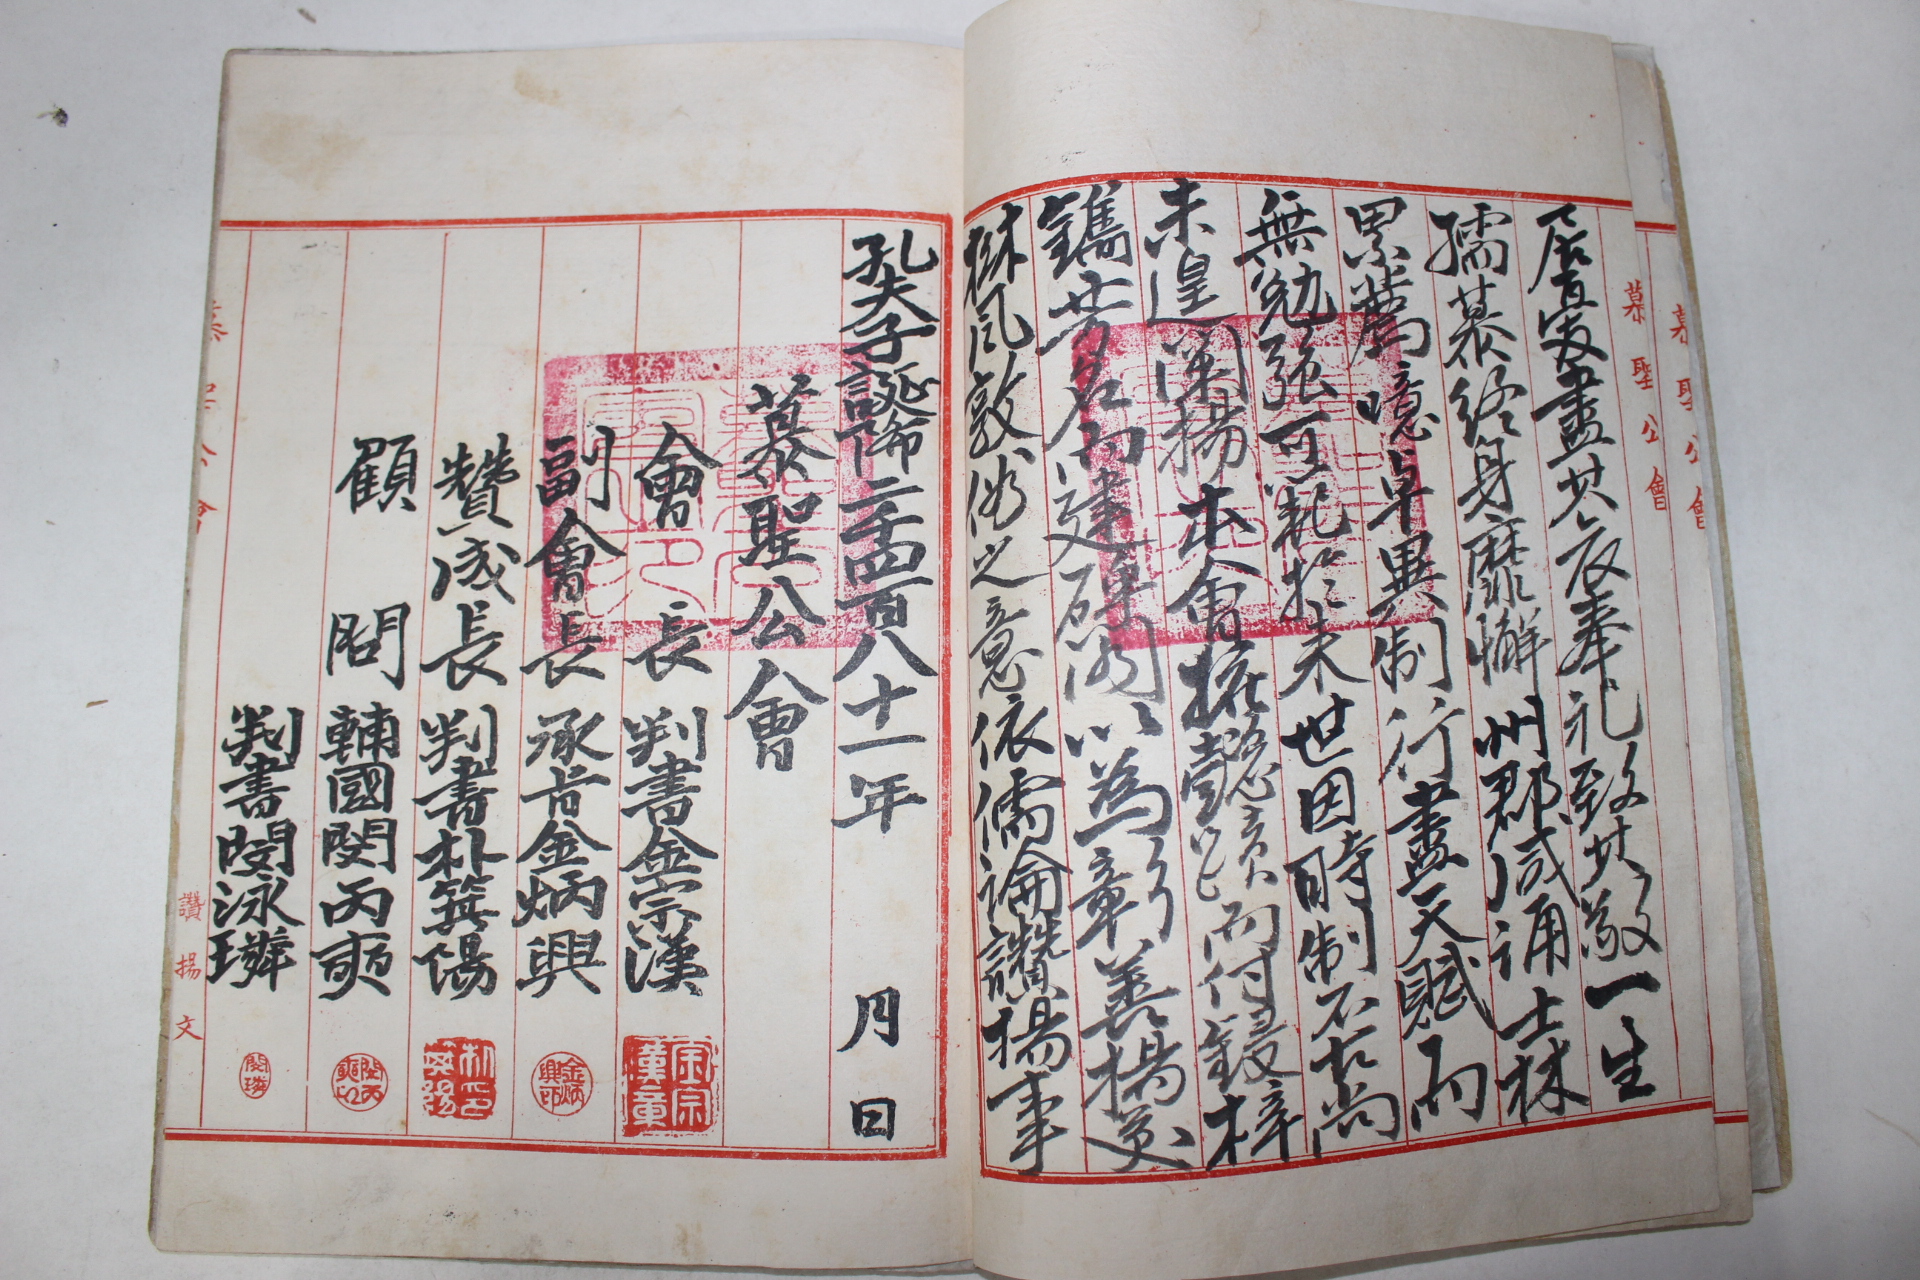 居宜安盡其衣奉礼致其敬一生
孺慕終身靡懈州郡咸誦士林
累薦噫卓異制行盡天賦而
無勉強可範於末世因時制不右尚
未遑闡揚本會據懿蹟而付錄梓
鐫芳名而建碑閣以爲彰善揚美
樹風敦俗之意依儒論讚揚事
孔夫子誕降二千四百八十一年 月 日
慕聖公會
會長 判書金宗漢
副會長 承旨金炳興
贊成長 判書朴箕陽
顧問 輔國閔丙奭
判書閔泳璘
慕聖公會
慕聖公會
慕聖公會
讚揚文